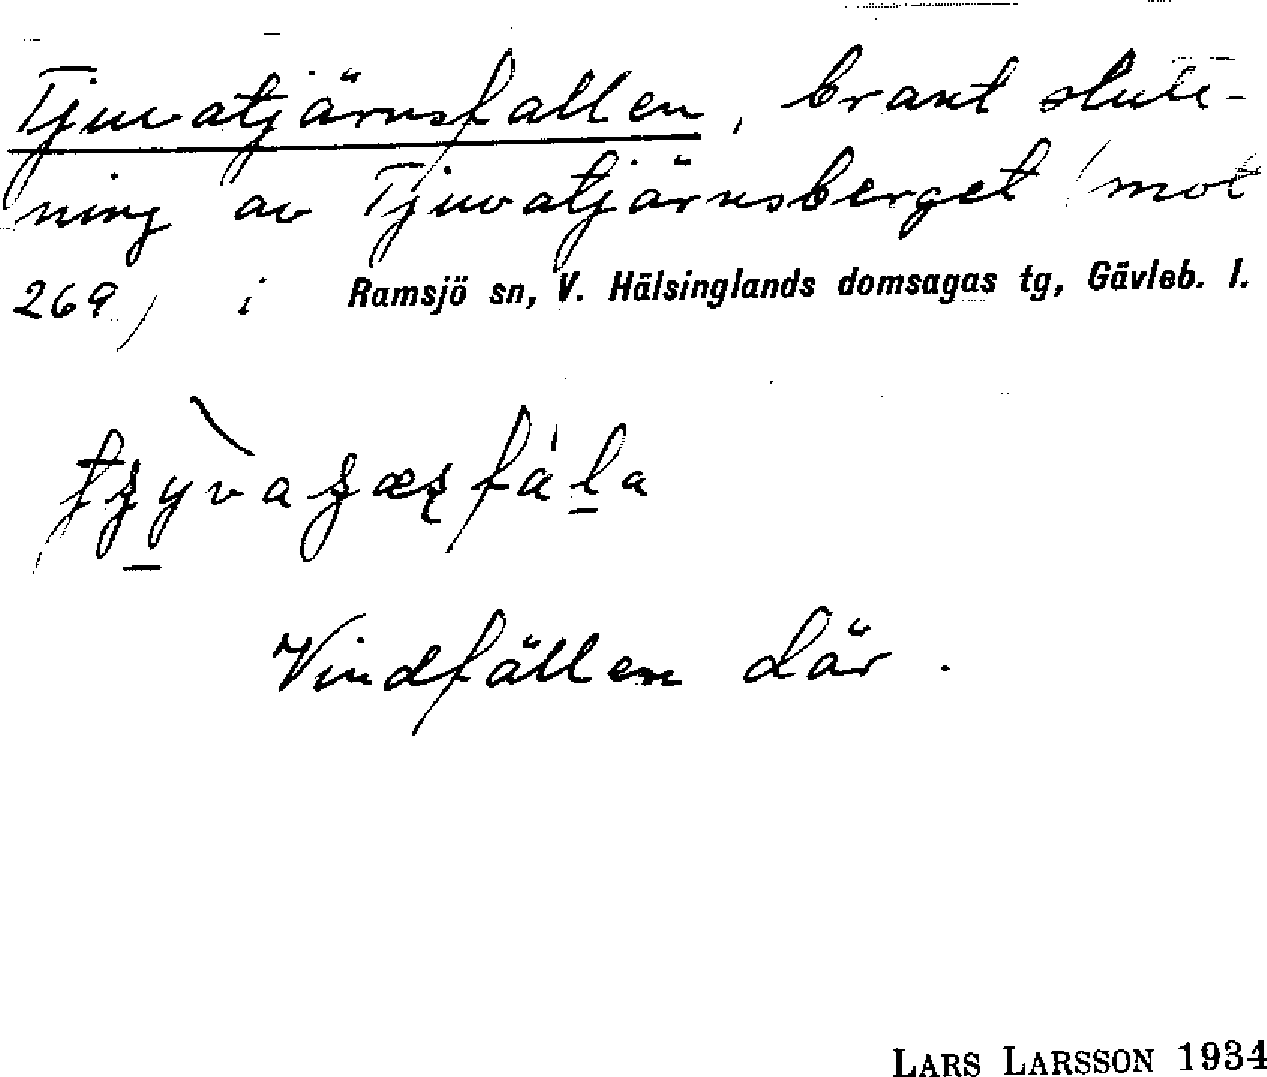 Tjuvatjärnsfallen, brant slutt-
ning av Tjuvatjärnsberget (mot
269) i Ramsjö sn, V. Hälsinglands domsagas tg, Gävleb. l.
Vindfällen där.
LARS LARSSON 1934